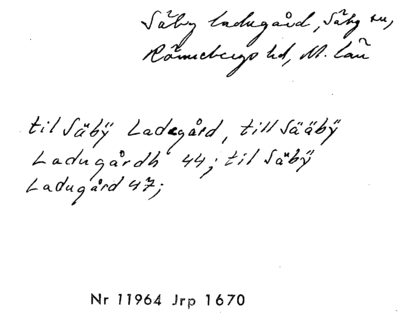 Säby ladugård, Säby sn,
Rönnebergs hd, M. län
til Säbÿ Ladegård, till Sääbÿ
Ladugårdh 44; til Säbÿ
Ladugård 47;
Nr 11964 Jrp 1670